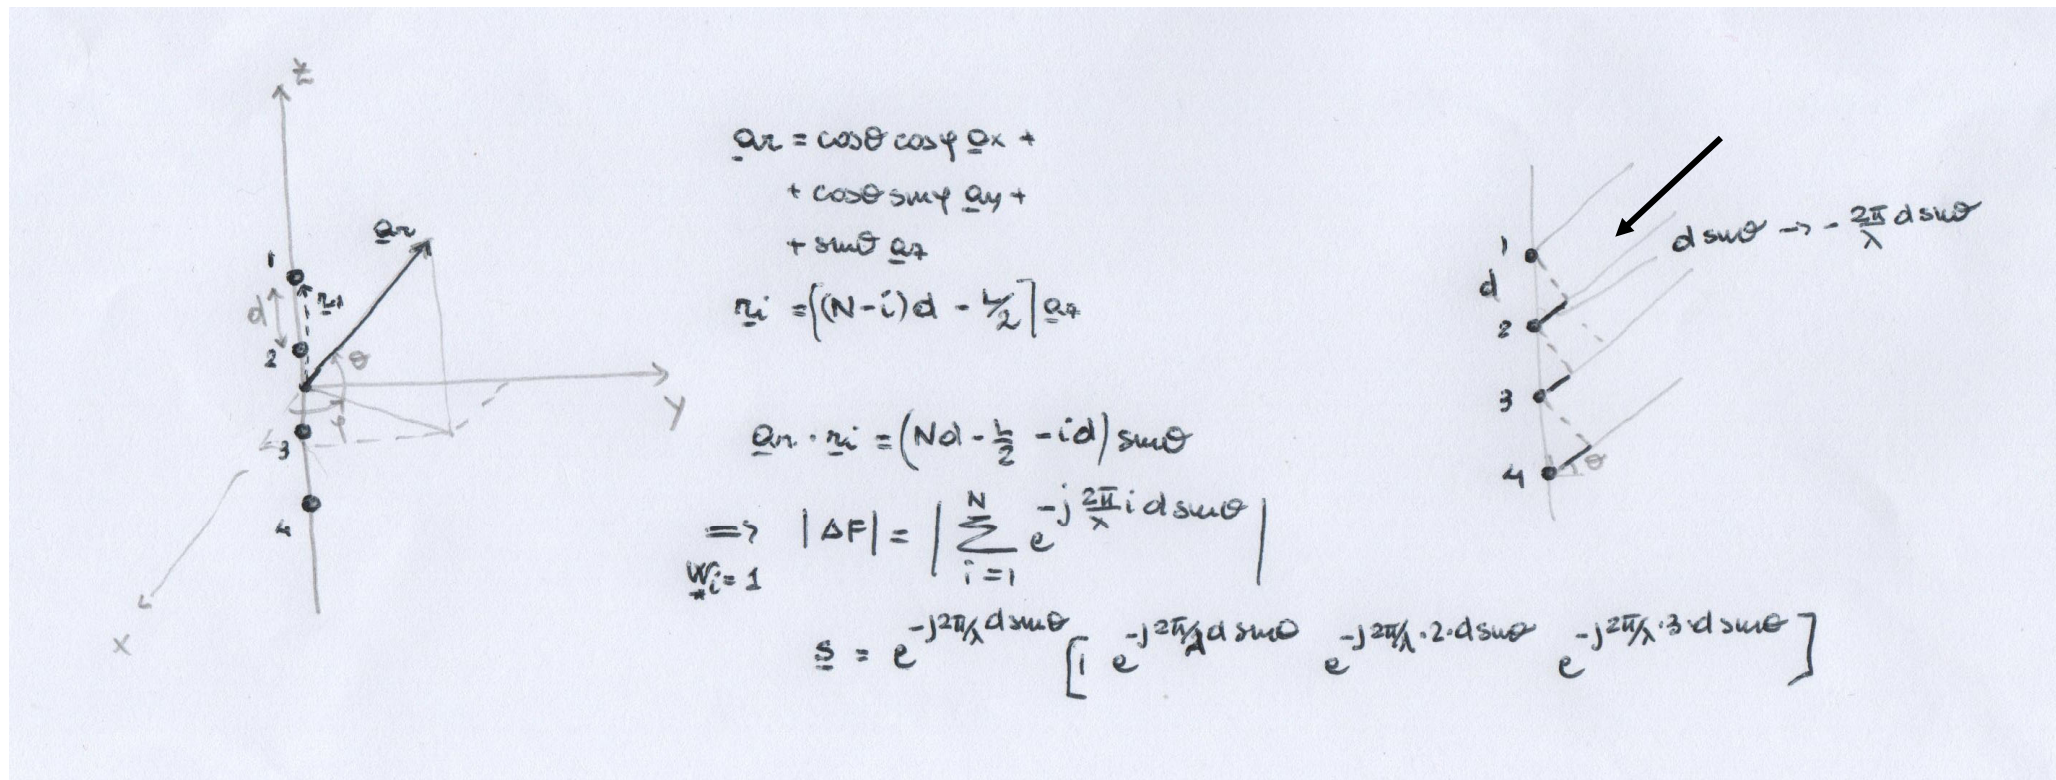 z
a̲r
1
d
r̲1
2
θ
φ
3
4
x
y
a̲r = cosθ cosφ a̲x +
+ cosθ sinφ a̲y +
+ sinθ a̲z
r̲i = [(N-i)d - L/2] a̲z
a̲r · r̲i = (Nd - L/2 - id) sinθ
=> |ΔF| = | Σ_{i=1}^{N} e^{-j 2π/λ i d sinθ} |
w̲i = 1
s̲ = e^{-j2π/λ d sinθ} [1 e^{-j2π/λ d sinθ} e^{-j2π/λ·2·d sinθ} e^{-j2π/λ·3·d sinθ}]
1
d
2
3
4
θ
d sinθ -> - 2π/λ d sinθ